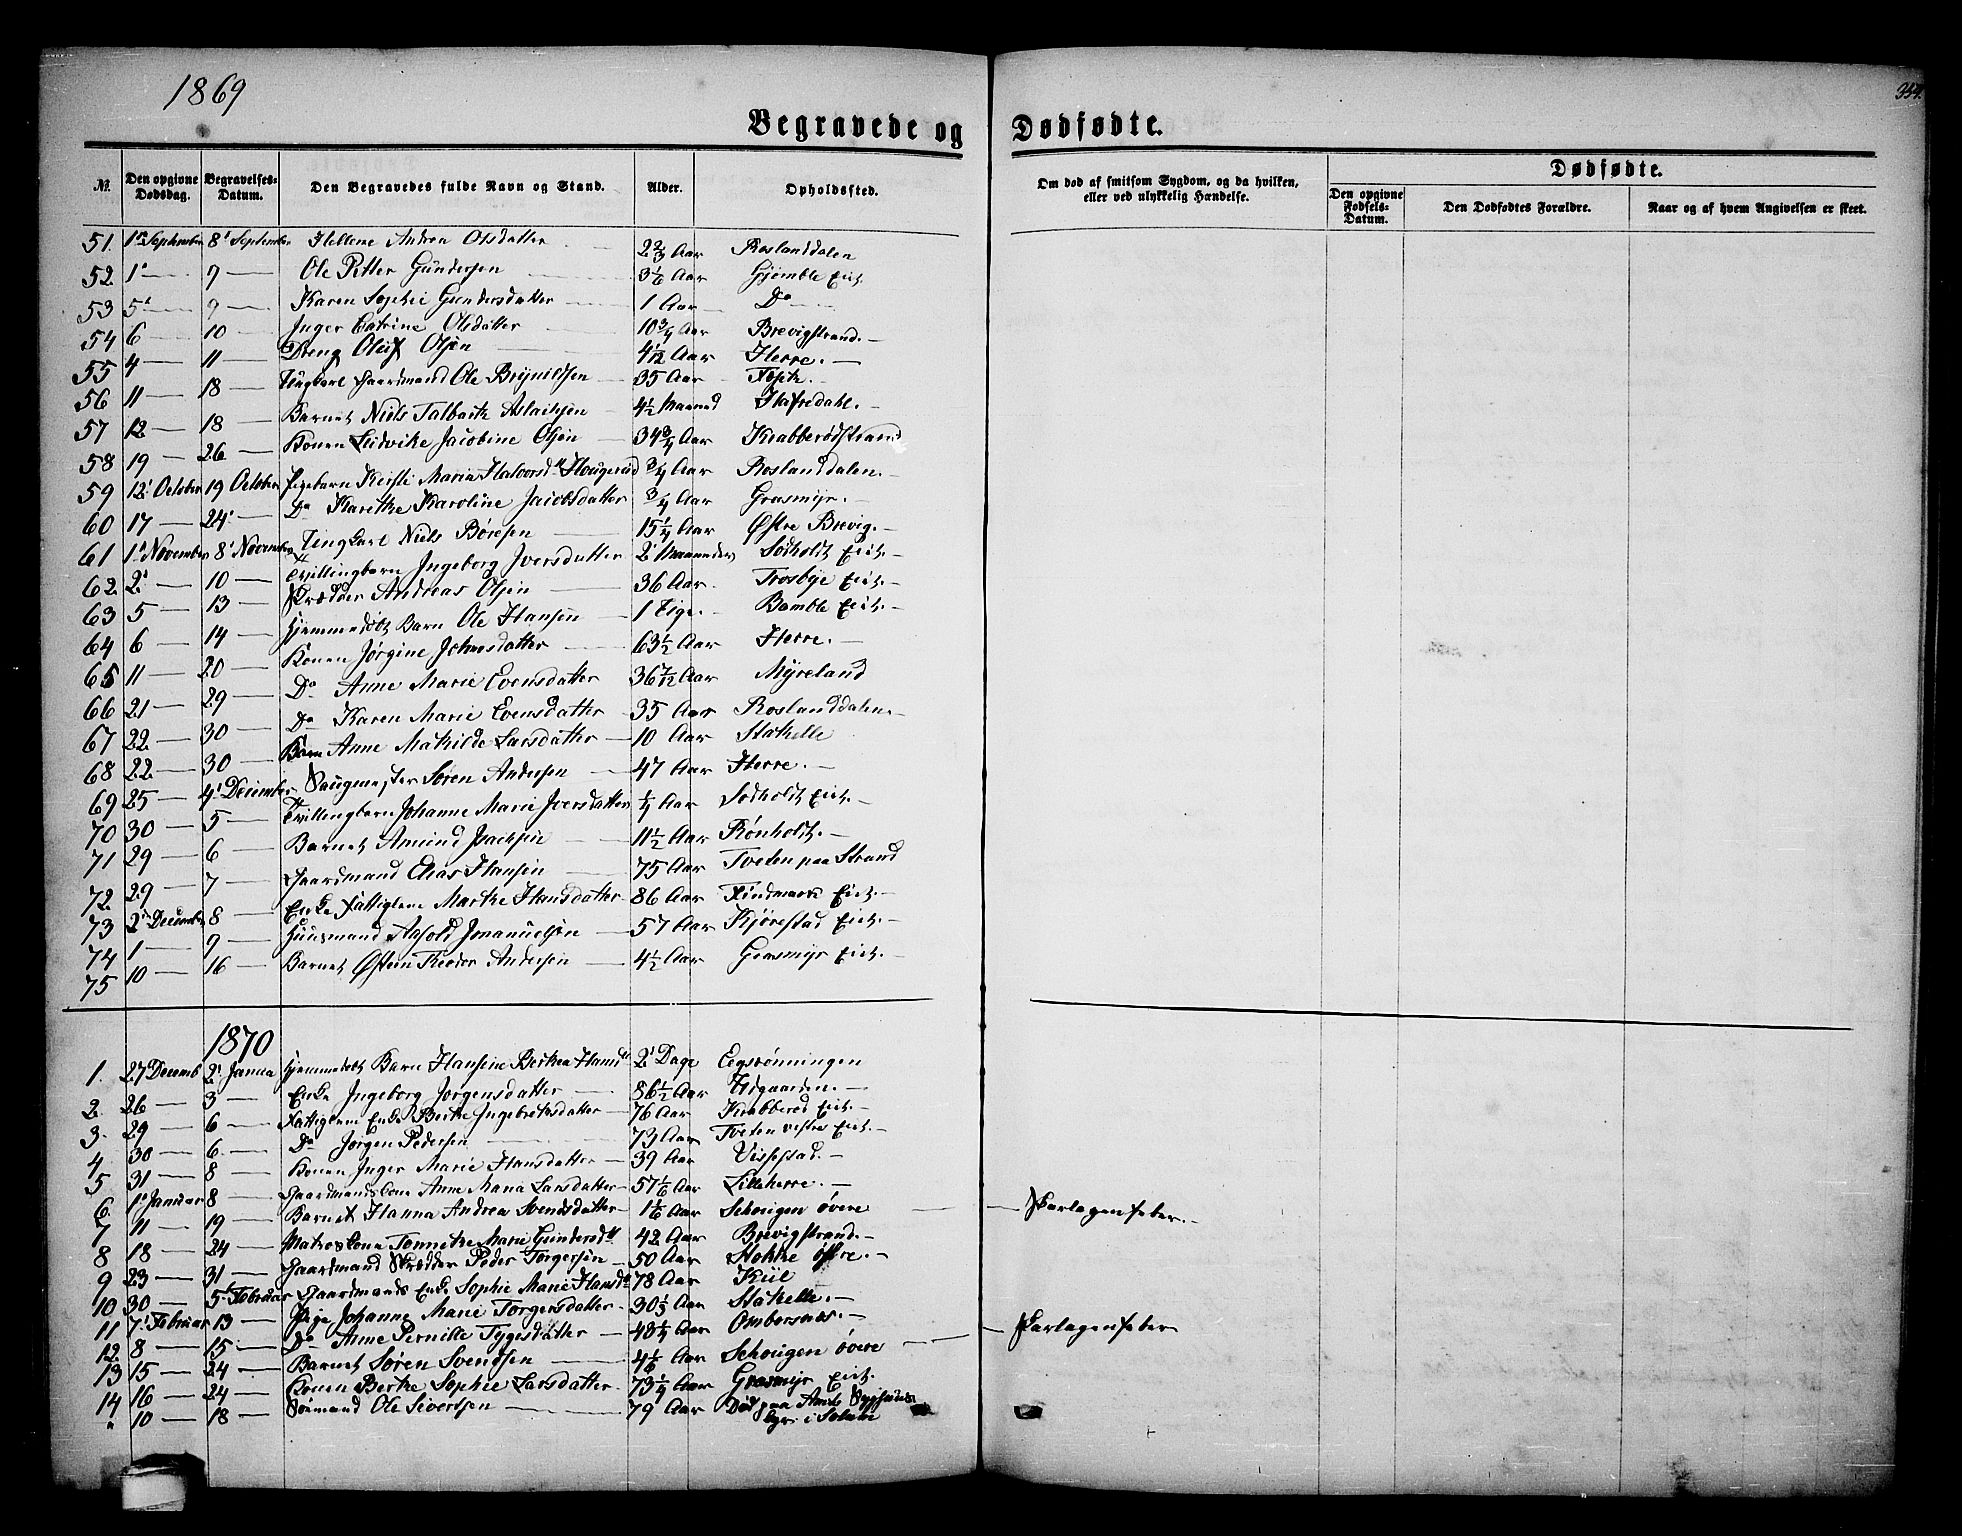 1869
354.
Begravede og Dødfødte.
№ Den opgivne Dødsdag. Begravelses-Datum. Den Begravedes fulde Navn og Stand. Alder. Opholdssted. Om død af smitsom Sygdom, og da hvilken, eller ved ulykkelig Hændelse. Dødfødte.
Den opgivne Fødsels-Datum. Den Dødfødtes Forældre. Naar og af hvem Angivelsen er skeet.
51. 1ste September 8' September Hellene Andrea Olsdatter 2 2/3 Aar Roslanddalen
52. 1' — 9 — Ole Petter Gundersen 3 1/6 Aar Gjømble Eie.
53 5' — 9 — Karen Sophie Gundersdatter 1 Aar Do
54 6 — 10 — Inger Catrine Olsdatter 10 3/4 Aar Brevigstrand. —
55 4 — 11 — Dreng Oluf Olsen 4 1/12 Aar Herre. —
56 11 — 18 — Ungkarl Gaardmand Ole Brynildsen 35 Aar —
57 12 — 18 — Barnet Niels Talback Aslaksen 4 1/2 Maaned Hafredahl. —
58 19 — 26 — Konen Ludvike Jacobine Olsen 34 3/4 Aar Krabberødstrand
59 12' October 19 October Pigebarn Kirsti Maria Halvorsdtr Hougerud 3/4 Aar Roslanddalen. —
60 17 — 24' — Do Karethe Karoline Jacobsdatter 3/4 Aar Grasmyr. —
61 1' November 8' November Ungkarl Niels Børesen 15 1/4 Aar Østre Brevig. —
62. 2' — 10 — Tvillingbarn Ingeborg Iversdatter 2' Maaneder Sodholdt Eie. —
63 5 — 13 — Skrædder Andreas Olsen 36 Aar. Trosbye Eie. —
64 6 — 14 — Hjemmedøbt Barn Ole Hansen 1 Uge. — Bamble Eie. —
65 11 — 20 — Konen Jørgine Johnsdatter 63 1/2 Aar Herre. —
66 21 — 29 — Do Anne Marie Evensdatter 36 7/12 Aar Myreland
67 22 — 30 — Do Karen Marie Evensdatter 35 Aar Roslanddalen. —
68 22 — 30 — Barn Anne Mathilde Larsdatter 10 Aar Stokelle
69 25 — 4' December Saugmester Søren Andersen 47 Aar Herre. —
70 30 — 5 — Tvillingbarn Johanne Marie Iversdatter 1/4 Aar Sodholdt Eie. —
71 29 — 6 — Barnet Amund Isacksen 11 1/2 Aar Rønholdt. —
72. 29 — 7 — Gaardmand Elias Hansen 75 Aar Tveten paa Strand
73 2' December 8 — Enke Fattiglem Marthe Hansdatter 86 Aar Findmark Eie. —
74 1 — 9 — Huusmand Aasold Imanuelsen 57 Aar Kjørestad Eie. —
75 10 — 16 — Barnet Østen Theodor Andersen 4 1/2 Aar Grasmyr Eie. —
1870
1. 27 Decemb 2' Janua Hjemmedøbt Barn Hansine Berthea Hansdtr 2' Dage Eegsrønningen
2. 26 — 3' — Enke Ingeborg Jørgensdatter 86 1/2 Aar Udgaarden. —
3. 29 — 6 — Fattiglem Enke Berthe Ingebretsdatter 76 Aar Krabberød Eie. —
4. 30 — 6. — Do Jørgen Pedersen 73 Aar Tveten vestre Eie. —
5 31 — 8 — Konen Inger Marie Hansdatter 39 Aar Vissestad. —
6. 1' Januar 8 — Gaardmandskone Anne Maria Larsdatter 57 1/6 Aar Lilleherre. —
7 11 — 19 — Barnet Hanna Andrea Svendsdatter 1 1/6 Aar Schougen øvre — Skarlagensfeber. —
8 18 — 24 — Matroskone Tonnette Marie Gundersdtr 42 Aar Brevigstrand. —
9 23 — 31 — Gaardmand Skrædder Peder Torgersen 50 Aar Stokke østre. —
10 30 — 5' Februar Gaardmands Enke Sophie Marie Hansdtr 78 Aar Kiil
11 7' Februar 13 — Pige Johanne Marie Torgersdatter 30 1/3 Aar Stokelle. —
12. 8 — 15 — Do Anne Pernille Tygesdatter 48 1/4 Aar Ombersnes. —
13 15 — 24 — Barnet Søren Svendsen 4 1/6 Aar Schougen øvre — Skarlagensfeber
14 16 — 24 — Konen Berthe Sophie Larsdatter 73 1/4 Aar Grasmyr Eie.
" 10 — 18 — Sømand Ole Sivertsen 79 Aar Død paa Amts Sygehuset
i Solum